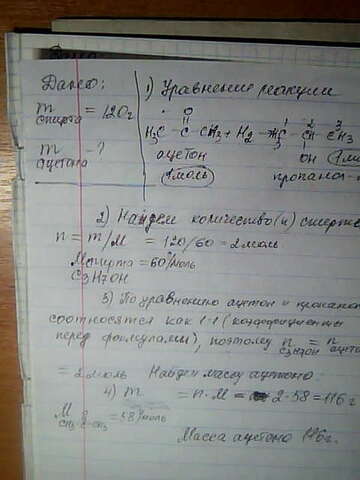 Дано:
m спирта = 120г
m ацетона - ?
1) Уравнение реакции
O
H3C - C - CH3 + H2 → CH3 - CH - CH3
1 2 3
ацетон OH
1 моль пропанол-
2) Найдем количество (n) спирта
n = m/M = 120/60 = 2 моль
M спирта = 60 г/моль
C3H7OH
3) По уравнению ацетон и пропанол
соотносятся как 1:1 (коэффициенты
перед формулами), поэтому n C3H7OH = n ацетона
= 2 моль Найдем массу ацетона
4) m = n · M = 2·58 = 116 г
M CH3-C-CH3 = 58 г/моль
O
Масса ацетона 116г.